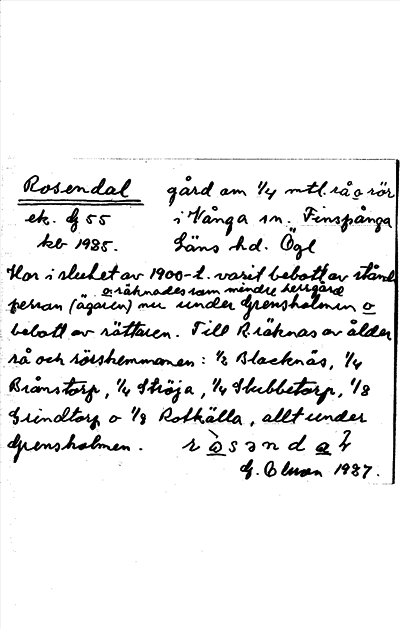 Rosendal gård om 1/4 mtl. rå o rör
ek. 55 i Vånga sn. Finspånga
kb 1985. Läns hd. Ögl
Har i slutet av 1900-t. varit bebott av stånd
o räknades som mindre herrgård
person (ägaren) nu under Grensholmen o
bebott av rättaren. Till R. räknas av ålder
rå och rörshemmanen: Blacknäs, 1/4
Brånstorp, 1/4 Ströja, 1/4 Stubbetorp, 1/8
Grindtorp o 1/8 Rotkälla, allt under
Grensholmen.
G. 1987.